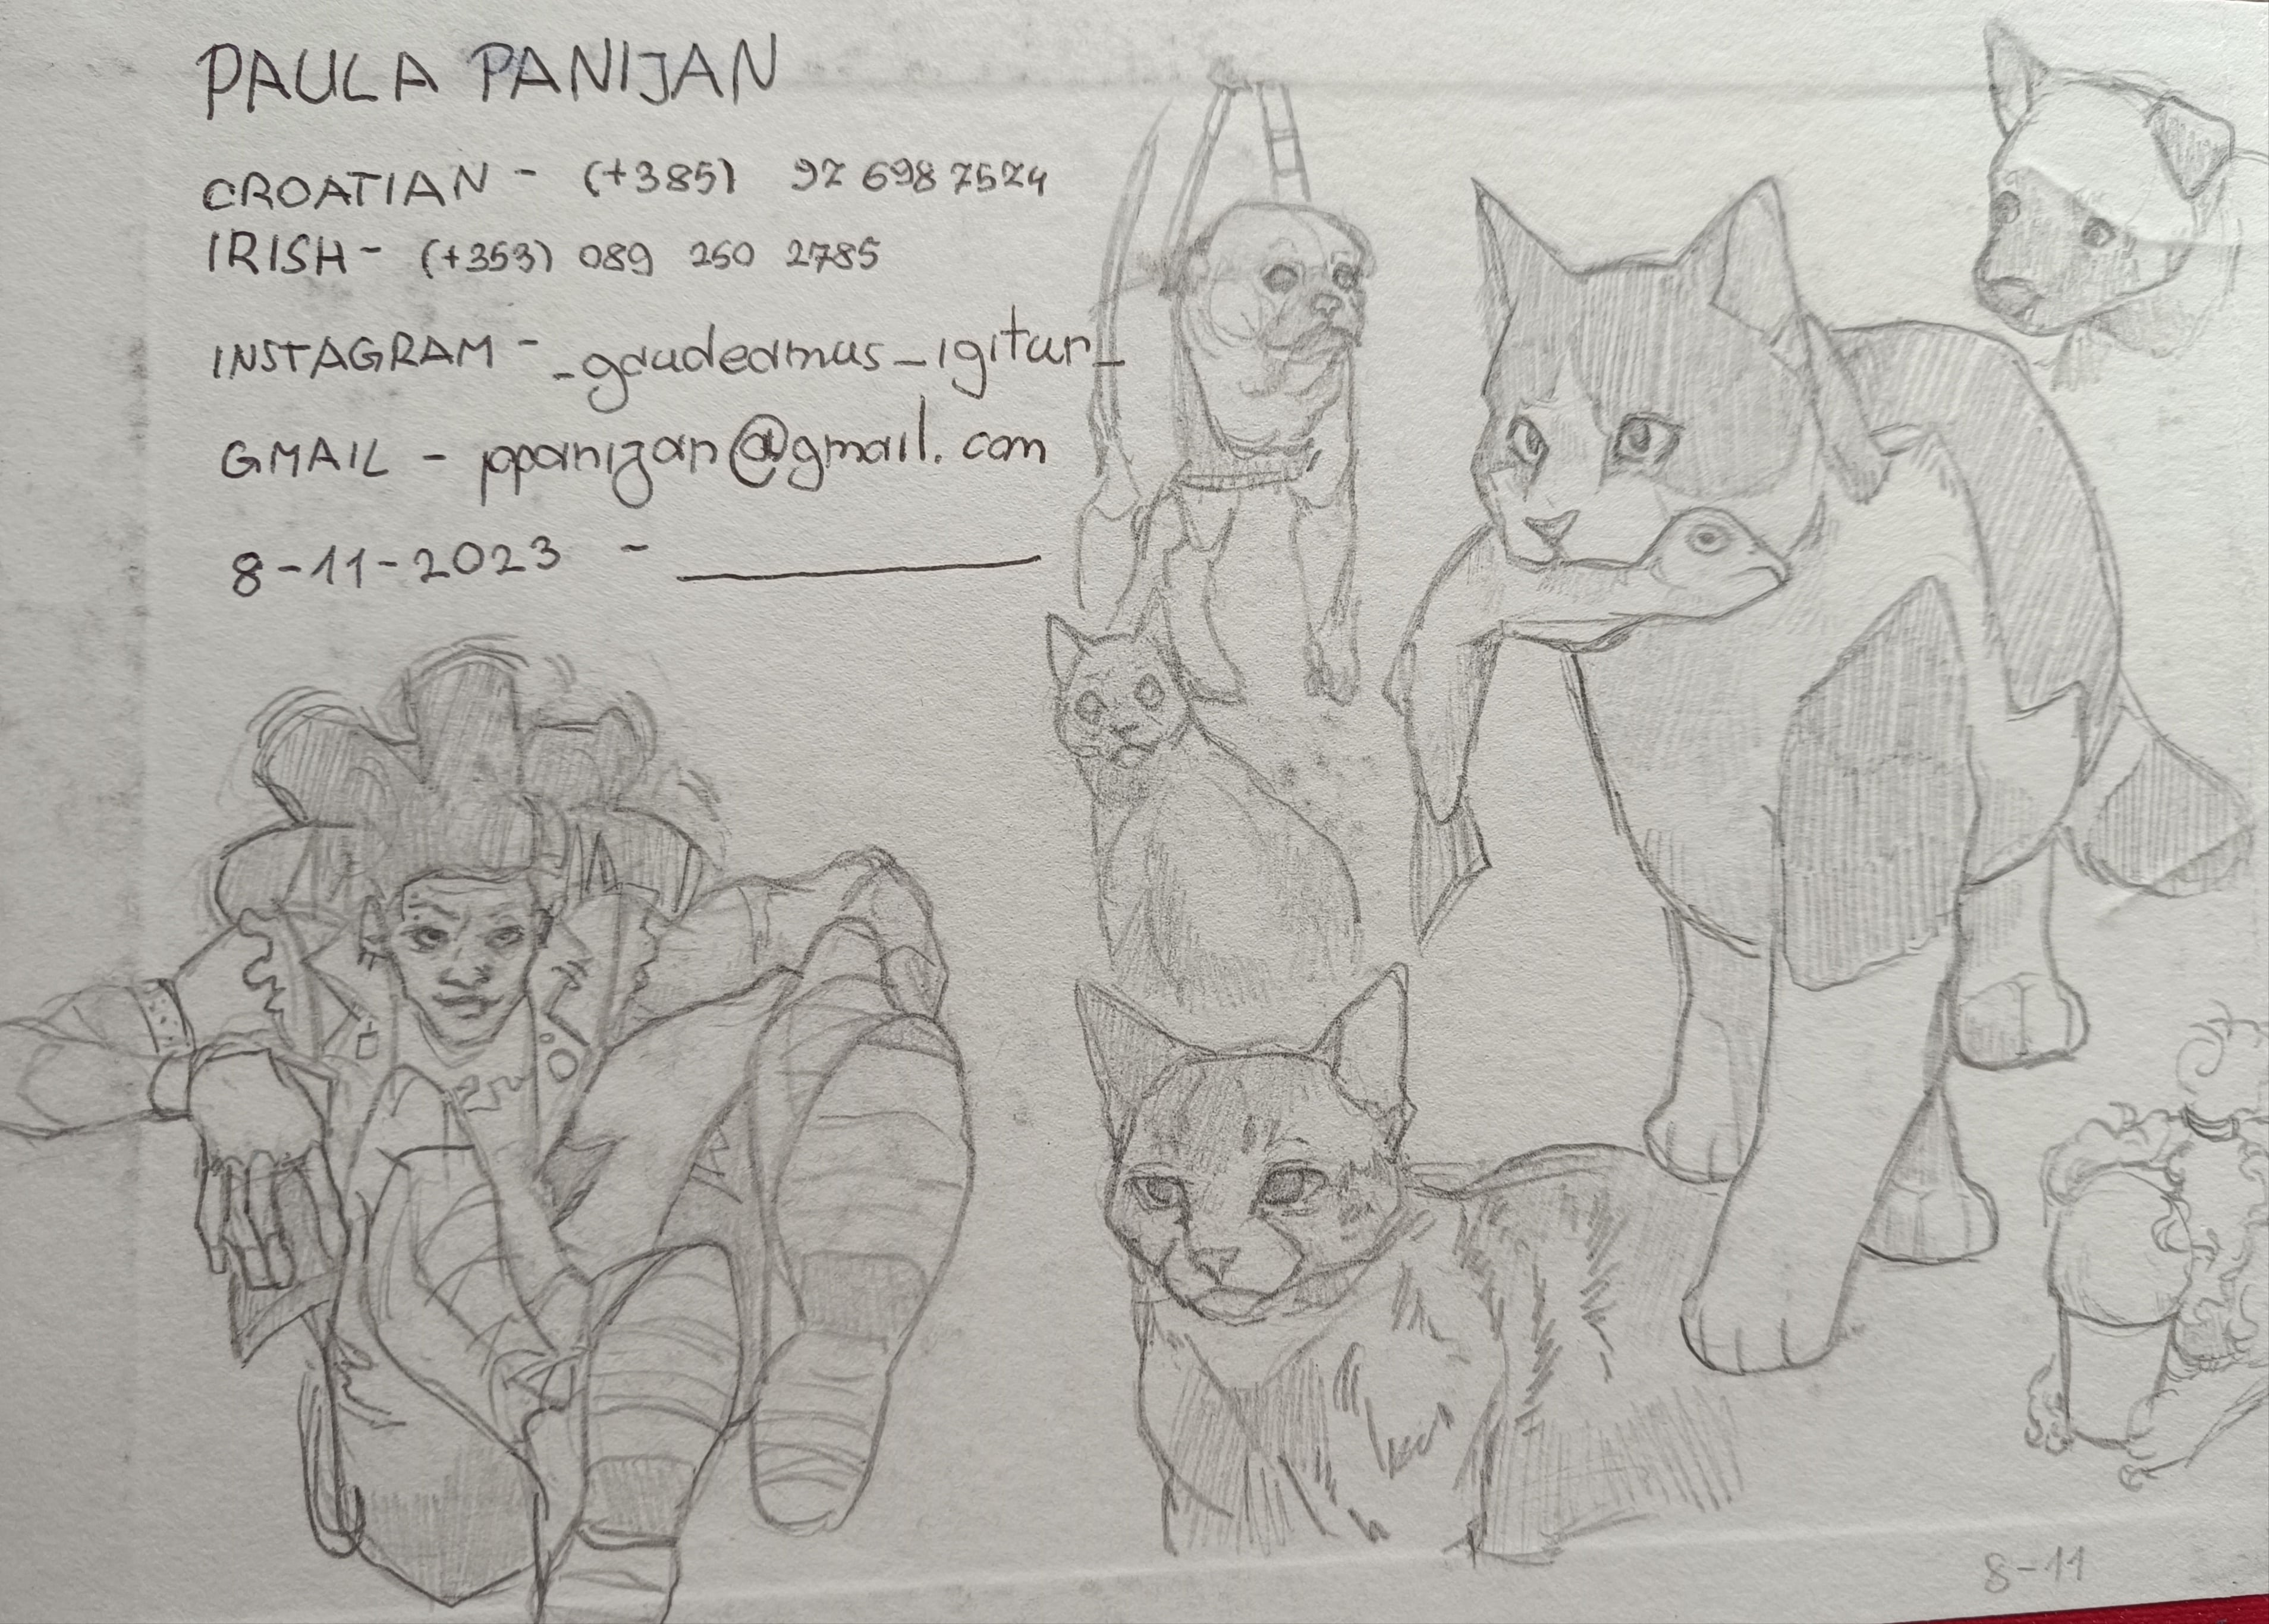 PAULA PANIJAN
CROATIAN - (+385) 97 698 7574
IRISH - (+353) 089 250 2785
INSTAGRAM - _gaudeamus_igitur_
GMAIL - ppanijan@gmail.com
8-11-2023 -
8-11